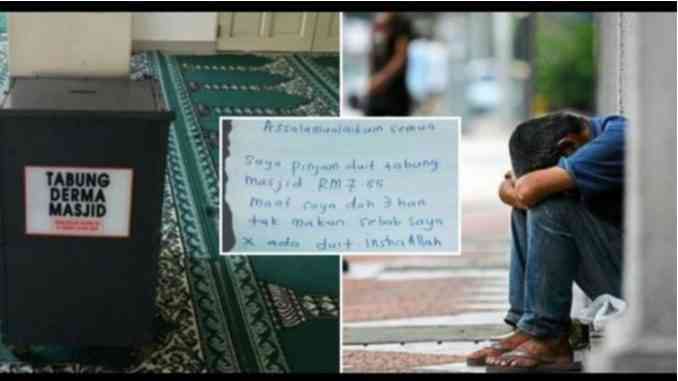 TABUNG
DERMA
MASJID
Assalamualaikum semua
Saya pinjam duit tabung
masjid RM7.55
Maaf saya dah 3 hari
tak makan sebab saya
x ada duit InshaAllah